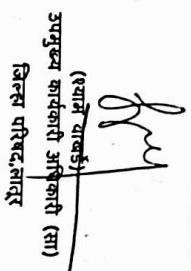 (श्याम वाखर्डे)
उपमुख्य कार्यकारी अधिकारी (सा)
जिल्हा परिषद,लातूर